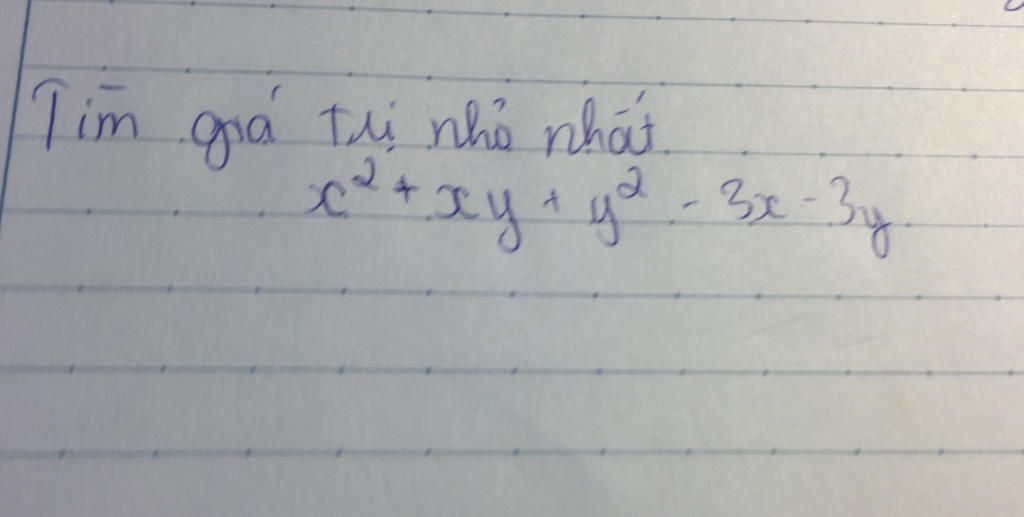 Tìm giá trị nhỏ nhất.
x² + xy + y² - 3x - 3y